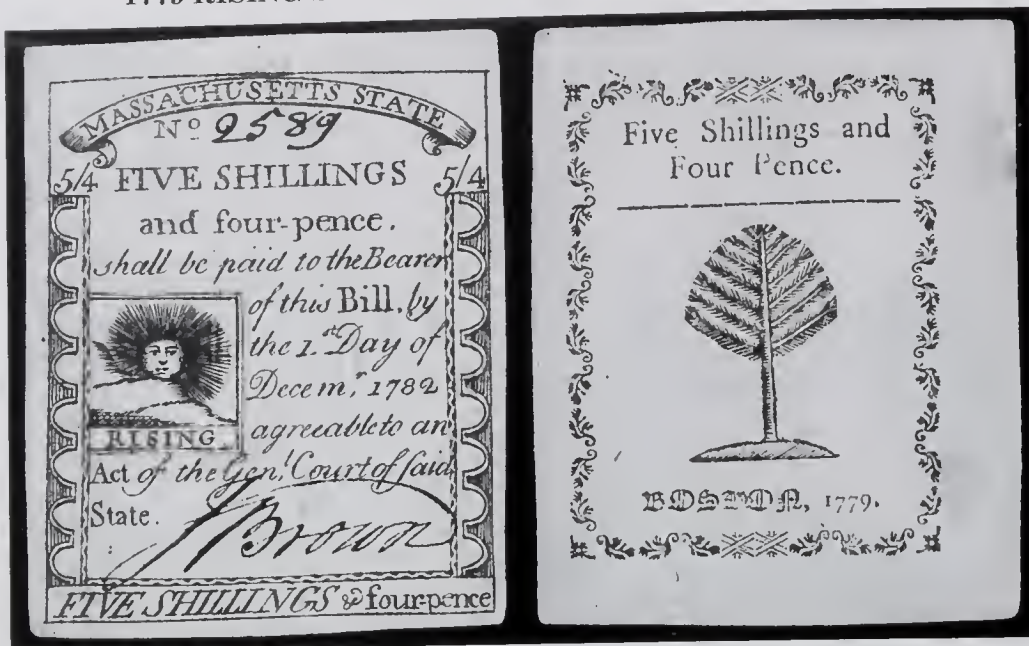 1779 RISING
MASSACHUSETTS STATE
No 2589
5/4 FIVE SHILLINGS 5/4
and four-pence.
shall be paid to the Bearer
of this Bill, by
the 1.st Day of
Decem.r 1782
RISING
agreeable to an
Act of the Gen.l Court of said
State.
J Brown
FIVE SHILLINGS & four-pence
Five Shillings and
Four Pence.
BOSTON, 1779.